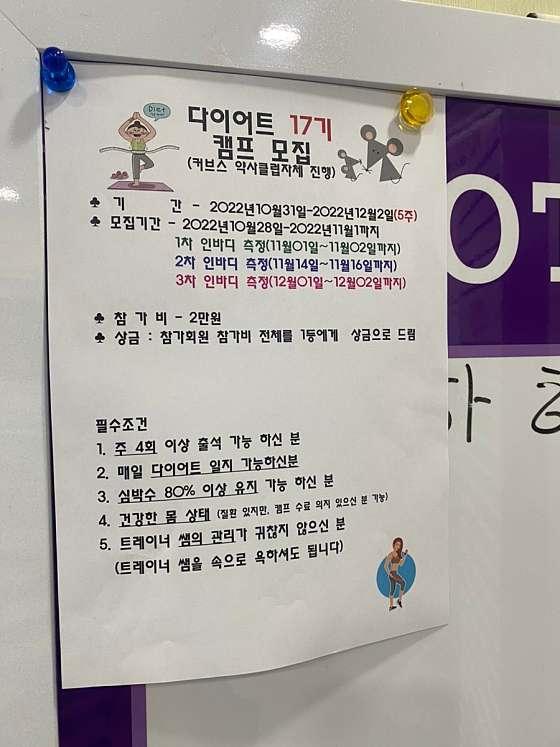 Diet
다이어트 17기
캠프 모집
(커브스 약사클럽자체 진행)
♣ 기 간 - 2022년10월31일-2022년12월2일(5주)
♣ 모집기간 - 2022년10월28일-2022년11월1까지
1차 인바디 측정(11월01일~11월02일까지)
2차 인바디 측정(11월14일~11월16일까지)
3차 인바디 측정(12월01일~12월02일까지)
♣ 참 가 비 - 2만원
♣ 상금 : 참가회원 참가비 전체를 1등에게 상금으로 드림
필수조건
1. 주 4회 이상 출석 가능 하신 분
2. 매일 다이어트 일지 가능하신분
3. 심박수 80% 이상 유지 가능 하신 분
4. 건강한 몸 상태 (질환 있지만, 캠프 수료 의지 있으신 분 가능)
5. 트레이너 쌤의 관리가 귀찮지 않으신 분
(트레이너 쌤을 속으로 욕하셔도 됩니다)